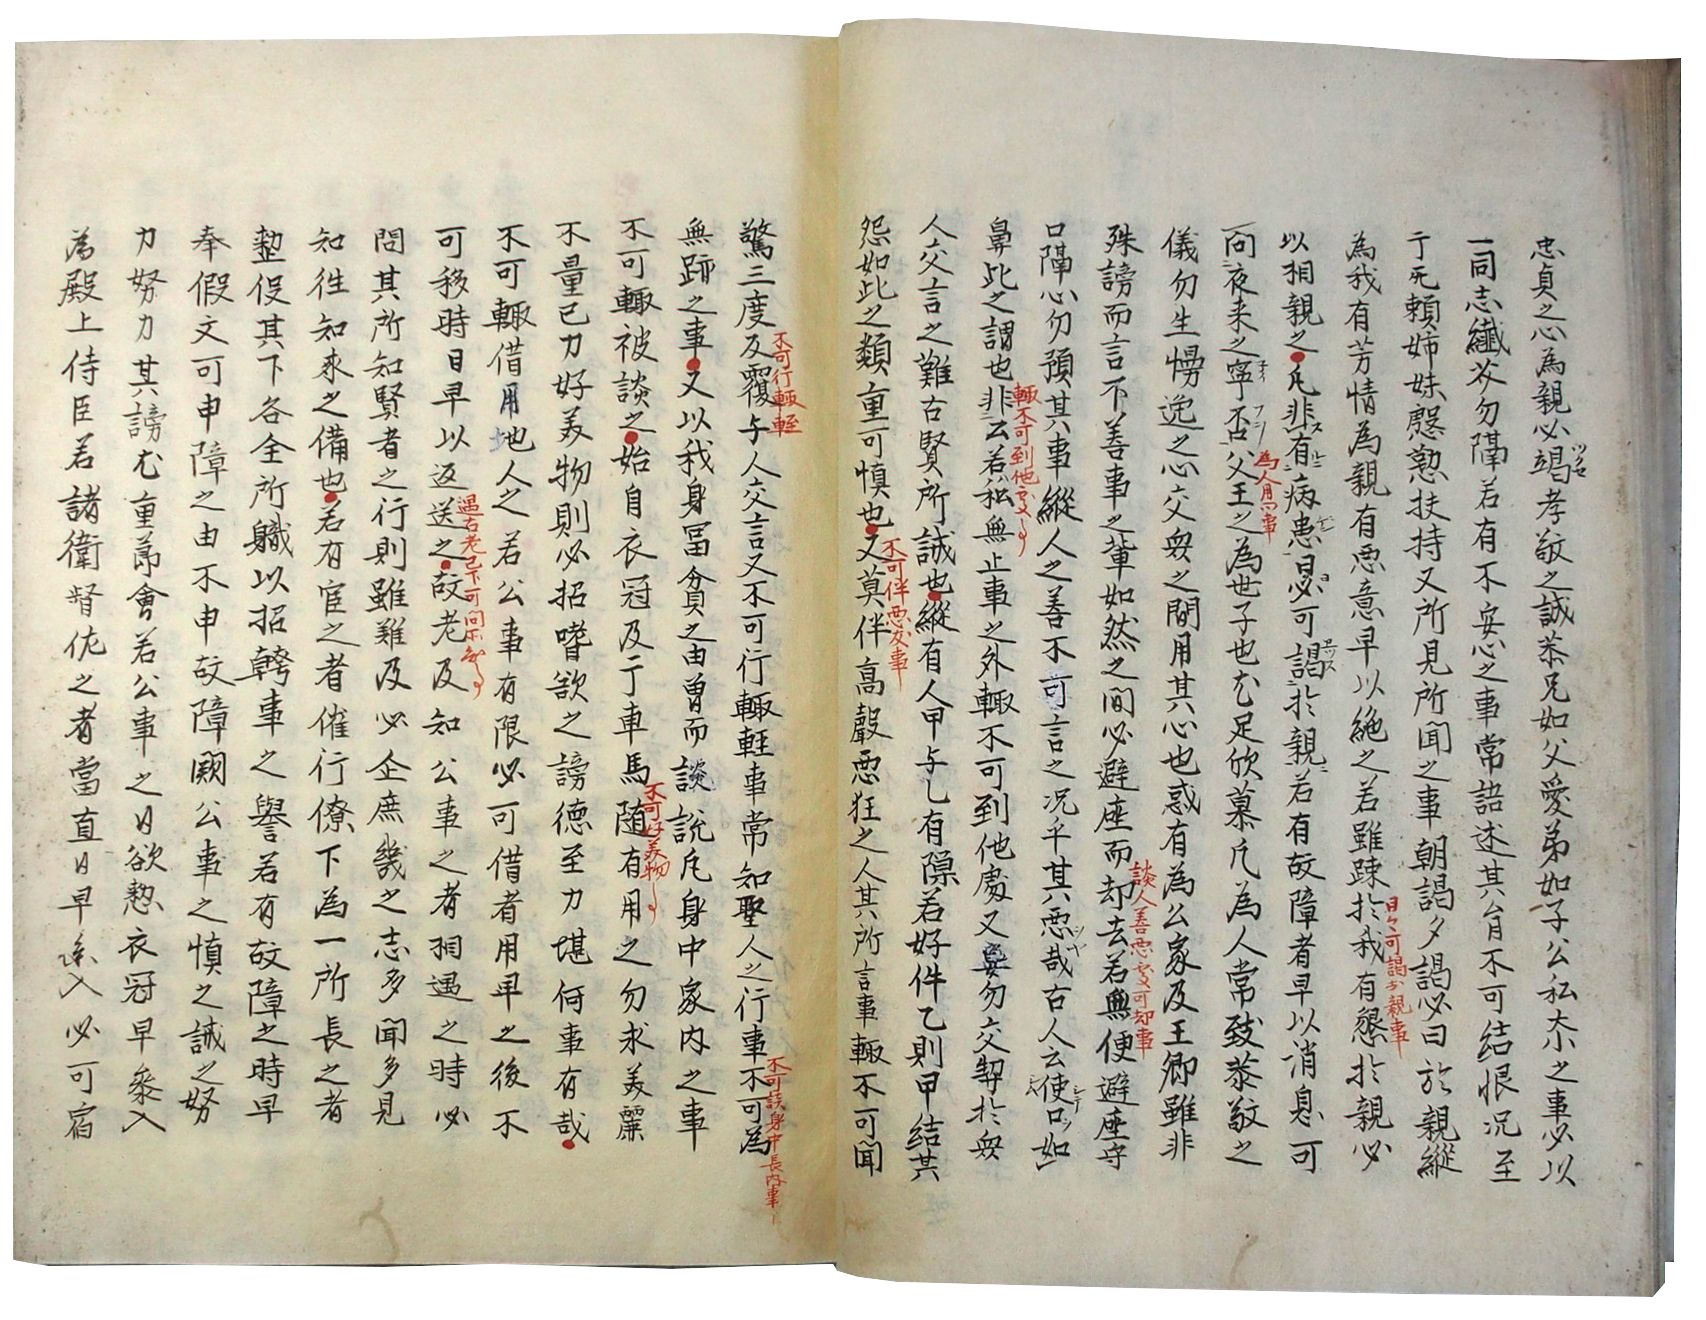 忠貞之心為親必竭孝敬之誠恭兄如父愛弟如子公私大小之事必以
一同志纖芥勿隔若有不安心之事常語述其旨不可結恨況至
于无頼姉妹慇懃扶持又所見所聞之事朝謁夕謁必曰於親縱
為我有芳情為親有悪意早以絶之若雖踈於我有懇於親必
以相親之凡非有病患日必可謁於親若有故障者早以消息可
問夜来之寧否父王之為世子也尤足欣慕凡為人常致恭敬之
儀勿生慢逸之心交衆之間用其心也或有為公家及王卿雖非
殊謗而言不善事之輩如然之間必避座而却去若無便避座守
口隔心勿預其事縱人之善不可言之況乎其悪哉古人云使口如
鼻此之謂也非云若私無止事之外輙不可到他處又妄勿交契於衆
人交言之難古賢所誡也縱有人甲与乙有隟若好件乙則甲結其
怨如此之類重可慎也又莫伴高聲悪狂之人其所言事輙不可聞
驚三度反覆与人交言又不可行輙軽事常知聖人之行事不可為
無跡之事又以我身冨貧之由曽而談説凡身中家内之事
不可輙被談之始自衣冠及于車馬随有用之勿求美麗
不量己力好美物則必招嗜欲之謗德至力堪何事有哉
不可輙借用他人之若公事有限必可借者用早之後不
可移時日早以返送之故老及知公事之者相遇之時必
問其所知賢者之行則雖難及必企庶幾之志多聞多見
知往知来之備也若有官之者催行僚下為一所長之者
整役其下各全所職以招幹事之譽若有故障之時早
奉假文可申障之由不申故障闕公事之慎之誡之努
力努力其謗尤重節會若公事之日欲整衣冠早参入
為殿上侍臣若諸衛督佐之者當直日早参入必可宿
日々可謁於親事
為人用心事
談人善悪處可却事
輙不可到他處事
不可伴悪友事
不可行輙軽
不可談身中家内事
不可好美物事
遇古老已下可問所知事